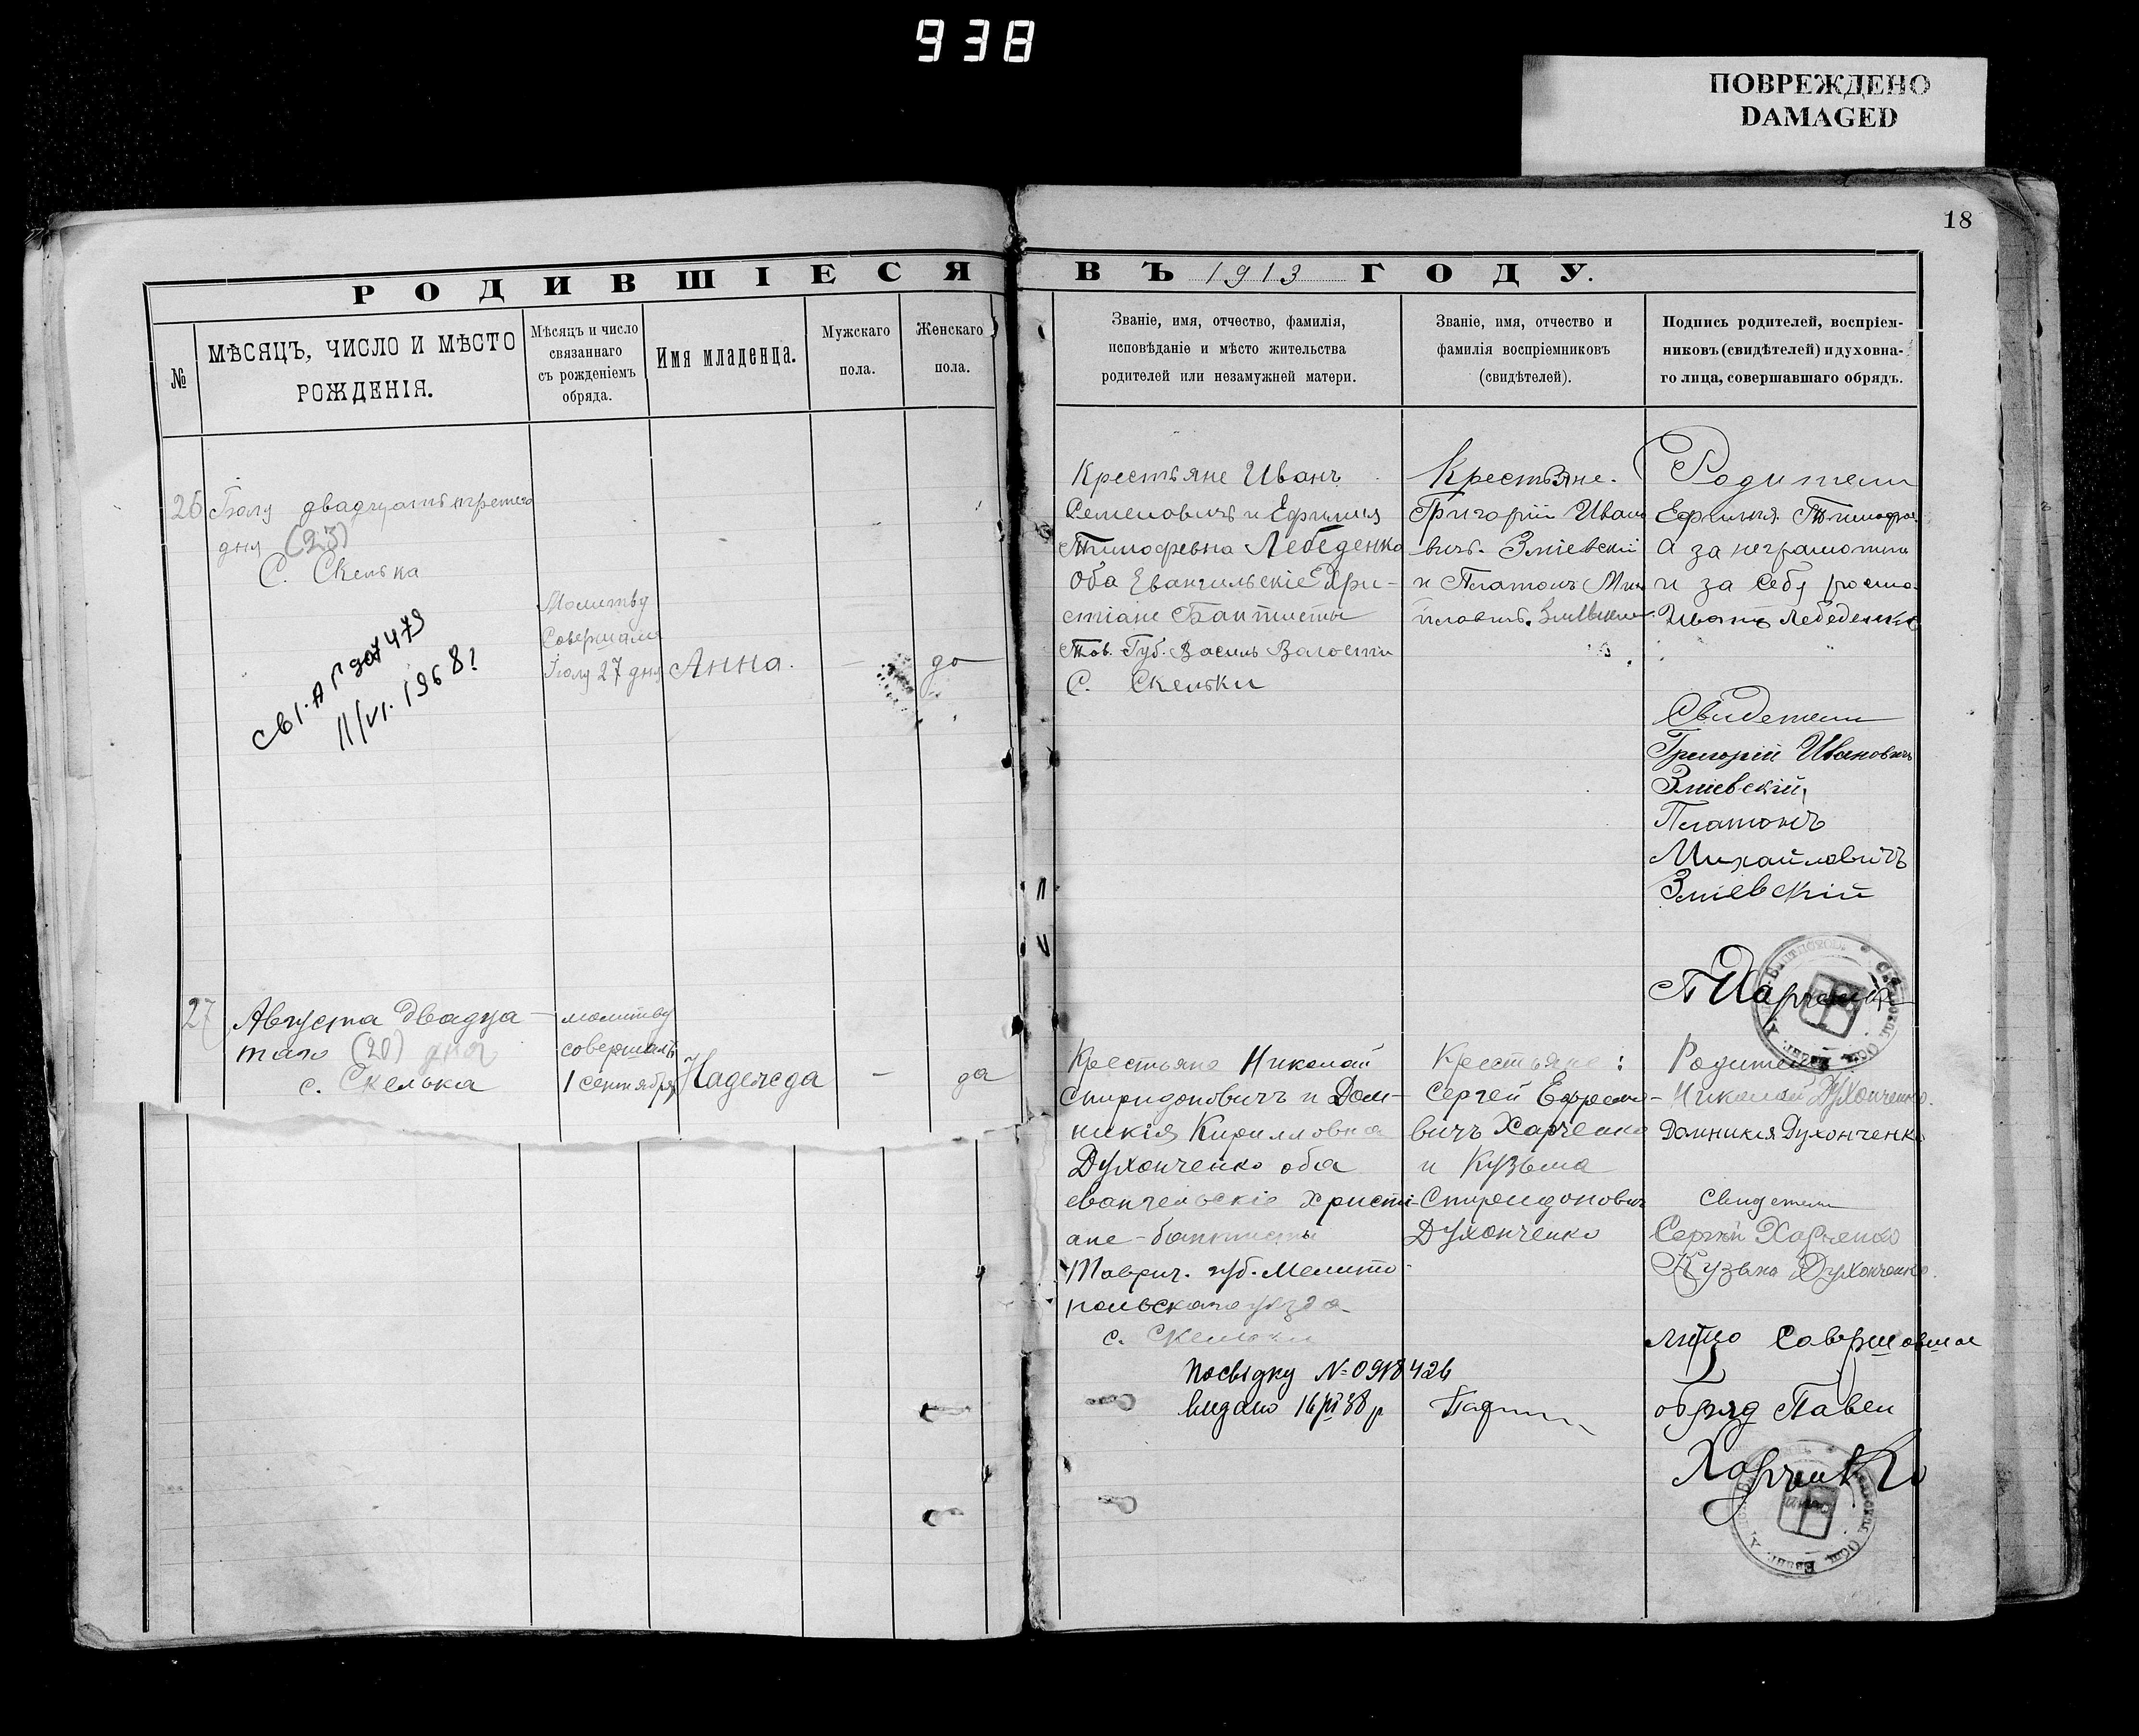 938
ПОВРЕЖДЕНО
DAMAGED
18
РОДИВШІЕСЯ ВЪ 1913 ГОДУ.
№
МѢСЯЦЪ, ЧИСЛО И МѢСТО
РОЖДЕНІЯ.
Мѣсяцъ и число
связаннаго
съ рожденіемъ
обряда.
Имя младенца.
Мужскаго
пола.
Женскаго
пола.
Званіе, имя, отчество, фамилія,
исповѣданіе и мѣсто жительства
родителей или незамужней матери.
Званіе, имя, отчество и
фамилія воспріемниковъ
(свидѣтелей).
Подпись родителей, воспріем-
никовъ (свидѣтелей) и духовна-
го лица, совершавшаго обрядъ.
26
двадцать третего
дня (23)
С. Скелька
Молитву
Совершал
Іюля 27 дня
Анна.
—
да
Св і. АГ 207479
11/VI. 1968
Крестьяне Иванъ
Семеновичъ и Ефимия
Тимофевна Лебеденко
Оба Евангильскіе Хри-
стіане Баптисты
Тов. Губ. Василь
С. Скельки
Крестьяне.
Григорій Ивано
вичъ. Зміевскій
и Платонъ Ми
Родители
Ефимия
а за неграмотну
и за себя роспис
Иванъ Лебеденко
Свидетели
Григорій Ивановичъ
Зміевскій,
Платонъ
Михайловичъ
Зміевскій
П Харченко
27
Августа двадца-
таго (20) дня
с. Скелька
молитву
совершалъ
1 сентября
Надежда
—
да
Крестьяне Николай
Спиридоновичъ и Дом-
никія Кирилловна
Духонченко оба
евангельскіе христі-
ане-баптисты
Таврич. губ. Мелито
польскаго уѣзда
с. Скельки
Крестьяне:
Сергей Ефремо-
вичъ Харченко
и Кузьма
Спиридонович
Духонченко
Родители
Николай Духонченко.
Домникия Духонченко
Свидетели
Сергей Харченко
Кузьма Духонченко.
лицо совершовшое
обряд Павел
Харченко
Посвідку № 0918426
видано 16/VI 38 р